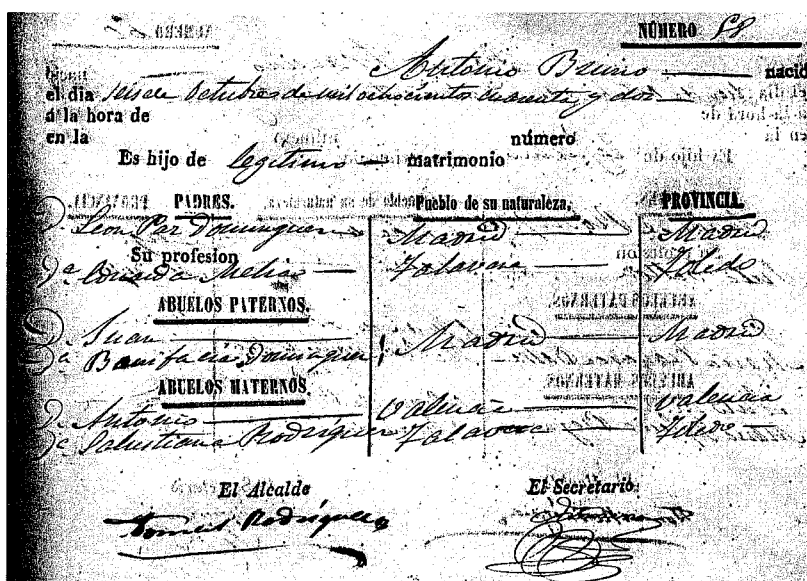 NUMERO 58
Antonio Bruno nacid
el dia seis de Octubre de mil ochocientos cuarenta y dos
á la hora de
en la número
Es hijo de legitimo matrimonio
PADRES. Pueblo de su naturaleza. PROVINCIA.
D. Leon Paz Dominguez Madrid Madrid
Su profesion
Dª Melias Talavera Toledo
ABUELOS PATERNOS.
D. Juan Madrid Madrid
Dª Bonifacia Dominguez
ABUELOS MATERNOS.
D. Antonio Valencia Valencia
Dª Salustiana Rodriguez Talavera Toledo
El Alcalde El Secretario
Tomas Rodriguez